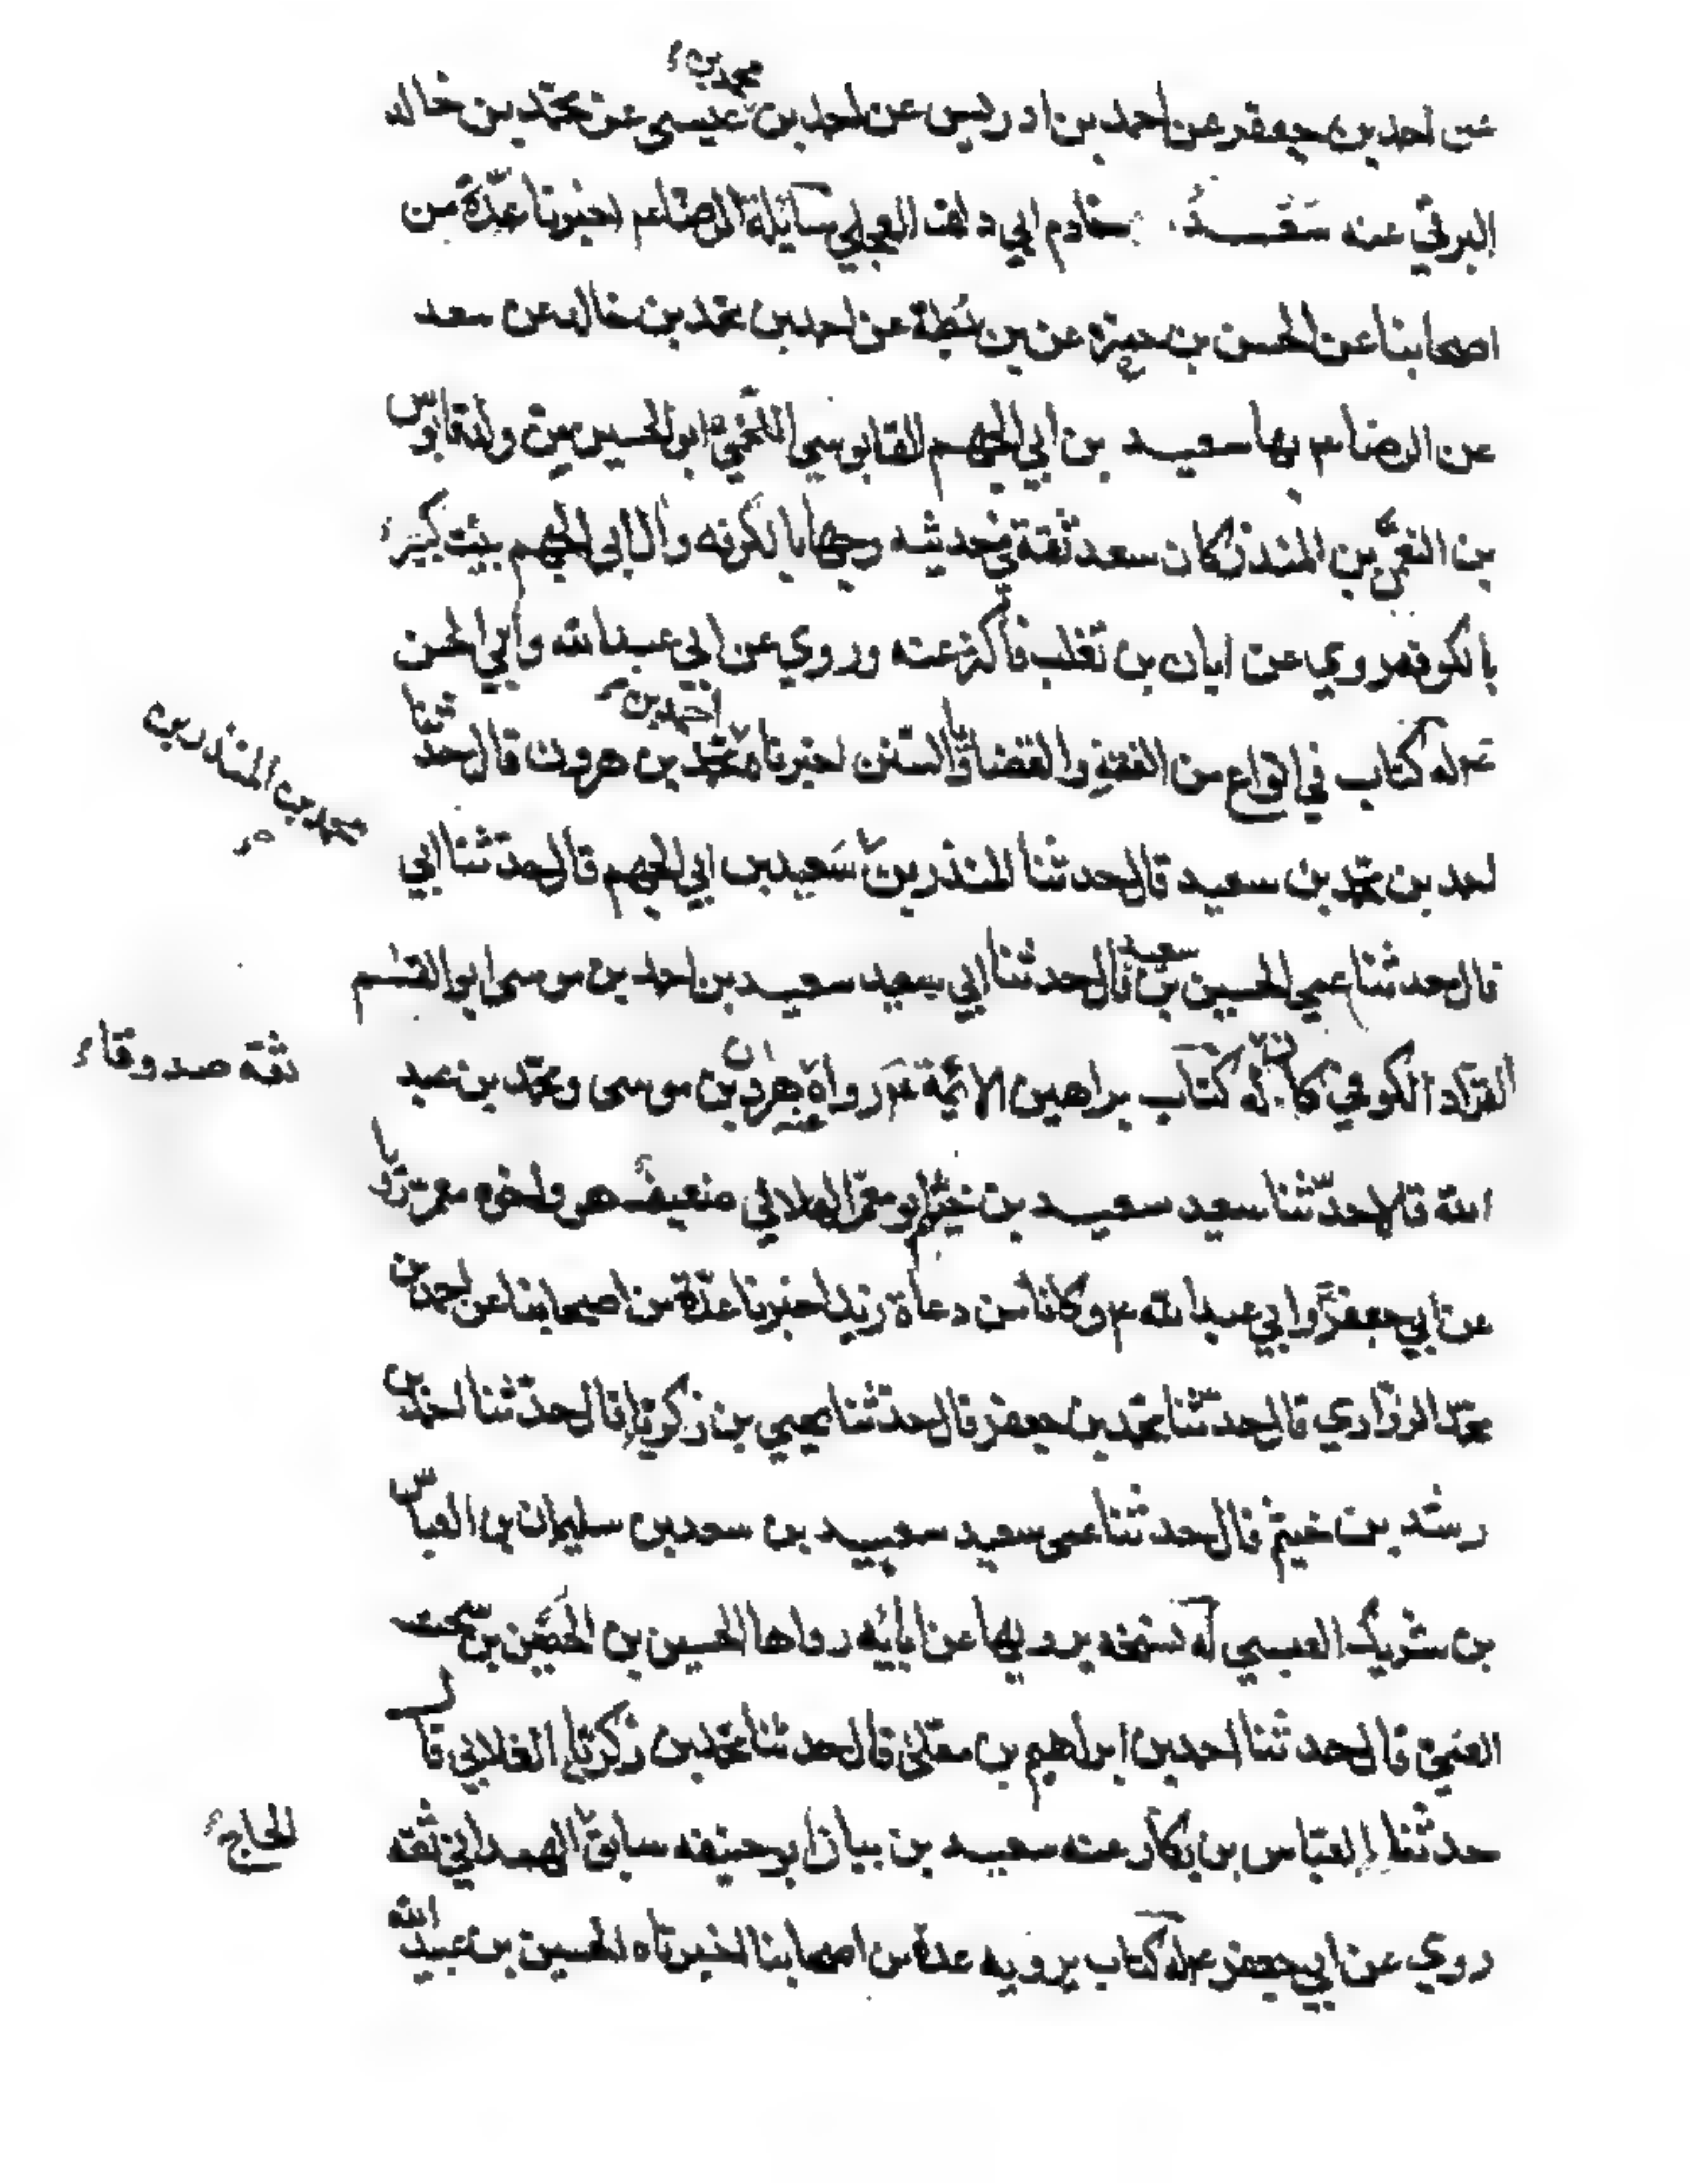 عن احمد بن جعفر عن احمد بن ادريس عن احمد بن محمد بن عيسى عن محمّد بن خالد
البرقي عنه سَعْد خادم ابي دلف العجلي مسائله للرضا عم اخبرنا عدّة من
اصحابنا عن الحسن بن حمزة عن بن بُطة عن احمد بن محمّد بن خالد عن سعد
عن الرضا عم بها سعيد بن ابي الجهم القابوسي اللخمي ابو الحسين من ولد قابوس
بن النعمن بن المنذر كان سعد ثقة في حديثه وجها بالكوفه وآل ابي الجهم بيت كبير
بالكوفه روي عن ابان بن تغلب فأكثر عنه وروي عن ابي عبد الله وأبي الحسن
عم له كتاب في انواع من الفقه والقضايا والسنن اخبرناه احمد بن محمّد بن هرون قال حدّثنا
احمد بن محمّد بن سعيد قال حدثنا المنذر بن سَعيد بن ابي الجهم قال حدّثنا ابي
محمد بن المنذر بن
قال حدثنا عمي الحسين بن سعيد قال حدثنا ابي سعيد سعيد بن احمد بن موسى ابو القسم
الغرّاد الكوفي كان له كتاب براهين الائمة عم رواه هرون بن موسى ومحمّد بن عبد
ثقة صدوقا
الله قالا حدّثنا سعيد سعيد بن خيثم ابو معمّر الهلالي ضعيف هو واخوه معمر رويا
عن ابي جعفر وابي عبد الله عم وكانا من دعاة زيد اخبرنا عدّة من اصحابنا عن احمد بن
محمّد الزراري قال حدّثنا محمّد بن جعفر قال حدثنا يحيى بن زكريا قال حدّثنا احمد بن
رشد بن خيثم قال حدثنا عمي سعيد سعييد بن سعد بن سليمان بن العباس
بن شريك العبسي له نسخه يرويها عن ابائيه رواها الحسين بن الحُصَين بن سحيت
القمي قال حدثنا احمد بن ابراهيم بن معلى قال حدثنا محمّد بن زكريا الغلابي قال
حدثنا العبّاس بن بكار عنه سعيد بن بيان ابو حنيفه سابق الهمداني ثقه
الحاج
روي عن ابي جعفر عم له كتاب يرويه عدة من اصحابنا اخبرناه الحسين بن عبيد الله